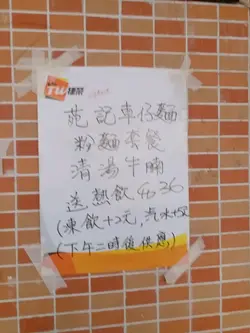 TW 捷榮
苑記車仔麵
粉麵套餐
清湯牛腩
送熱飲 36
(凍飲+2元,汽水+5元
(下午二時後供應)